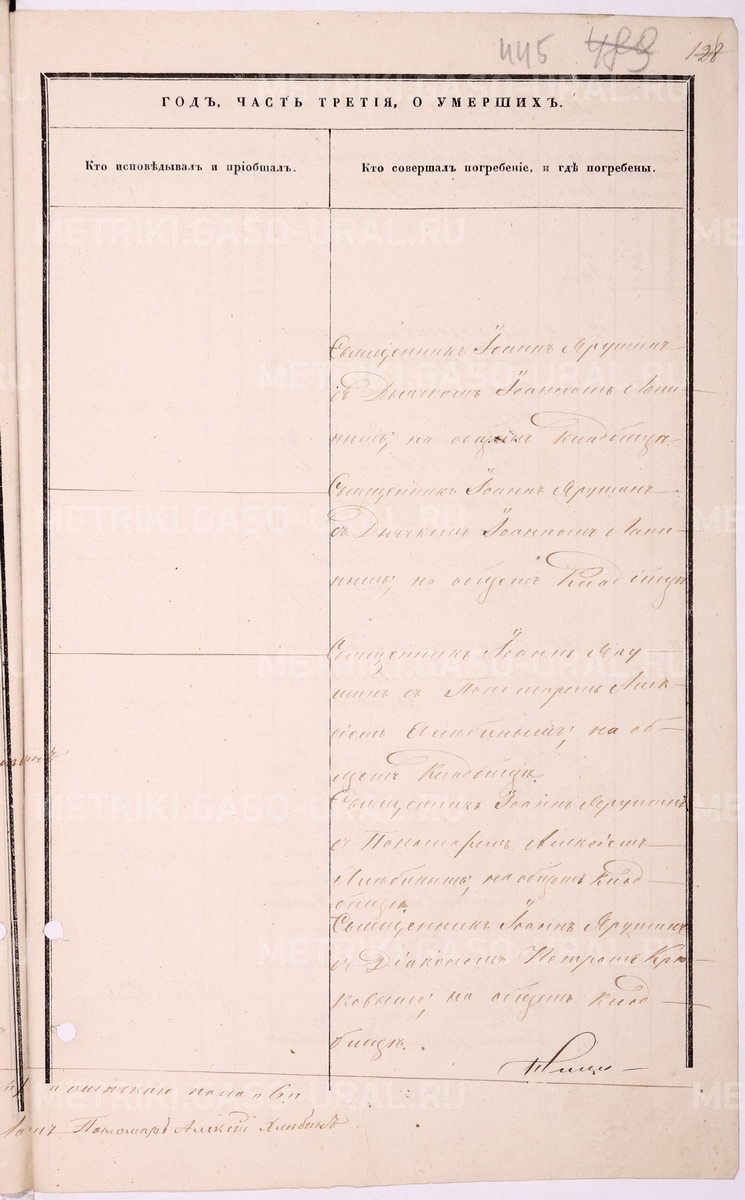 445 489 128
ГОДЪ, ЧАСТЬ ТРЕТІЯ, О УМЕРШИХЪ.
Кто исповѣдывалъ и пріобщалъ.
Кто совершалъ погребеніе, и гдѣ погребены.
Священникъ Іоаннъ Ярушинъ
съ Дьячкомъ Іоанномъ
на общемъ кладбищѣ.
Священникъ Іоаннъ Ярушинъ
съ Дьячкомъ Іоанномъ
на общемъ кладбищѣ
Священникъ Іоаннъ Яру
шинъ съ Пономаремъ Алек
сіемъ Хлюбинымъ, на об-
щемъ кладбищѣ.
Священникъ Іоаннъ Ярушинъ
съ Пономаремъ Алексіемъ
Хлюбинымъ, на общемъ клад
бищѣ
Священникъ Іоаннъ Ярушинъ
съ Діакономъ Петромъ Крю
ковымъ, на общемъ клад
бищѣ.
Пономарь Алексій Хлюбинъ
METRIKI.GASO-URAL.RU